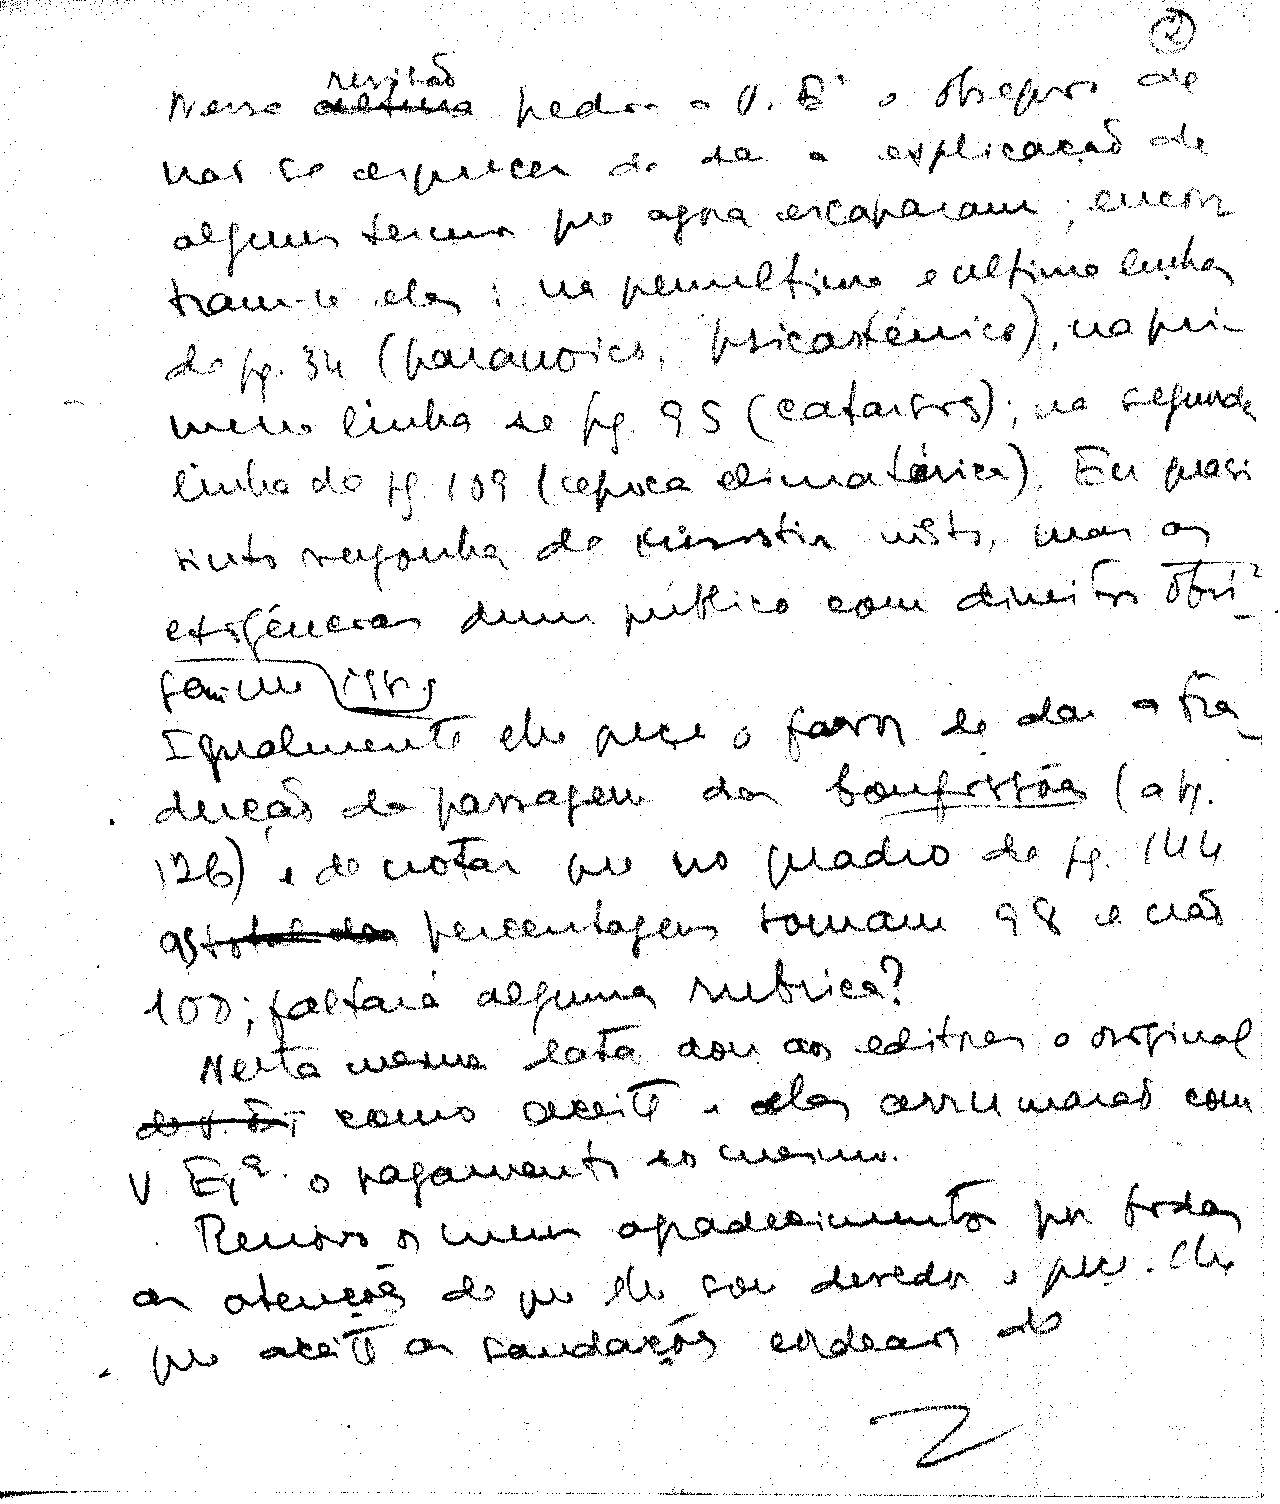 2
revisão
Nessa altura pedia a V. Exª o obsequio de
não se esquecer de dar a explicação de
alguns termos que agora escaparam; encon
tram-se eles: na penultima e ultima linhas
da pg. 34 (paranoico, psicasténico), na pri-
meira linha de pg. 95 (catarsis); na segunda
linha da pg 109 (época climatérica). Eu quasi
sinto vergonha de insistir nisto, mas as
exigências dum público com direitos obri-
gam-me
Igualmente lhe peço o favor de dar a tra
dução da passagem das Confissões (a pg.
126) e de notar que no quadro de pg. 144
as total das percentagens somam 98 e não
100; faltará alguma rubrica?
Nesta mesma data dou aos editores o original
de V. Ex como aceite e eles arrumarão com
V Exª o pagamento do mesmo.
Renovo os meus agradecimentos por todas
as atenções de que lhe sou devedor e peço-lhe
que aceite as saudações cordeais do